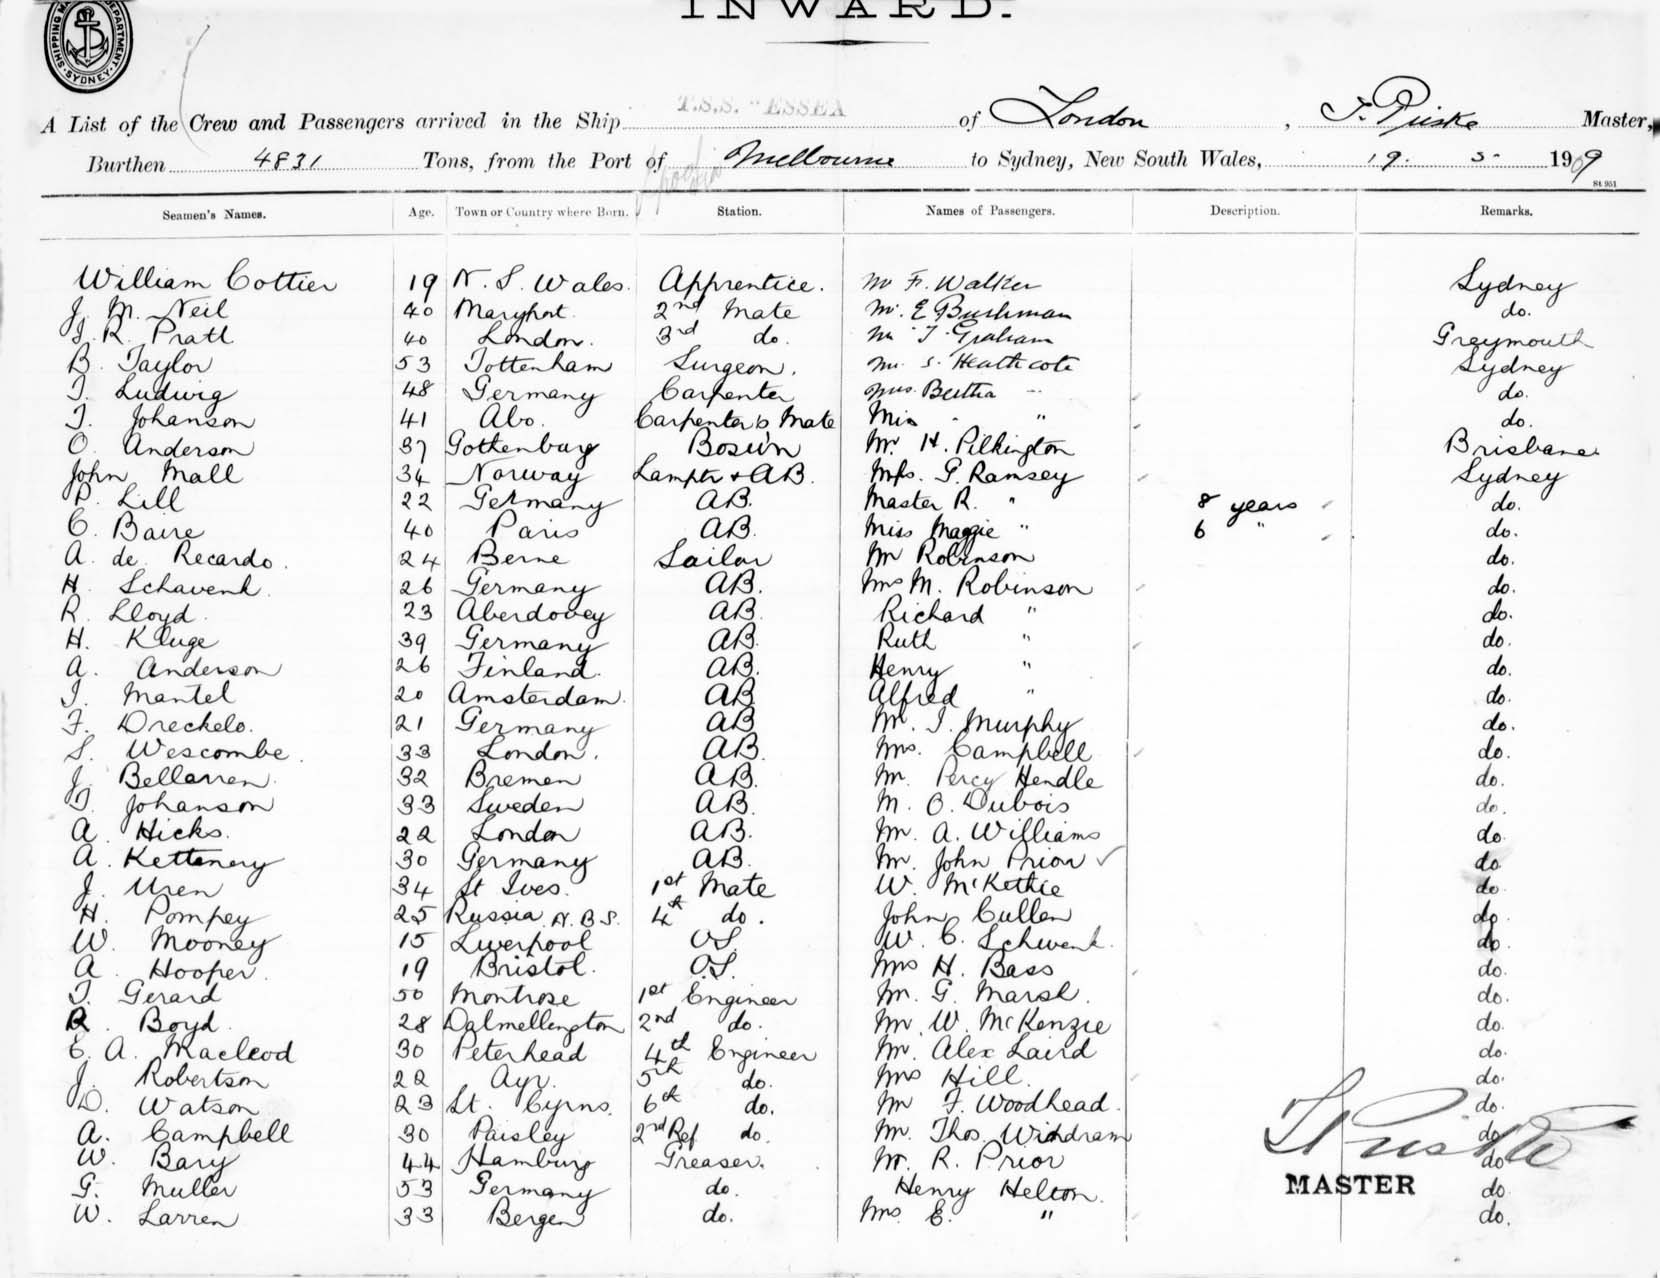 INWARD.
SHIPPING MA DEPARTMENT SYDNEY
A List of the Crew and Passengers arrived in the Ship T.S.S. "ESSEX of London, Master,
Burthen 4831 Tons, from the Port of Melbourne to Sydney, New South Wales, 19. 5- 1909
St 951
Seamen's Names. Age. Town or Country where Born. Station. Names of Passengers. Description. Remarks.
William Cottier 19 N. S. Wales. Apprentice. Mr F. Walker Sydney
J. M. Neil 40 Maryport 2nd Mate Mr. E Bushman do.
J. R. Pratt 40 London. 3rd do. Mr T Graham Greymouth
B. Taylor 53 Tottenham Surgeon. Mr. S. Heathcote Sydney
T. Ludwig 48 Germany Carpenter Mrs. Bertha " do.
T. Johanson 41 Abo. Carpenter's Mate Miss " " do.
O. Anderson 37 Gothenburg Bosun Mr. H. Pilkington Brisbane
John Mall 34 Norway Lamptr & AB. Mrs. G. Ramsey Sydney
P. Lill 22 Germany AB. Master R. " 8 years do.
C. Baire 40 Paris AB. Miss Maggie " 6 " do.
A. de Recardo. 24 Berne Sailor Mr Robinson do.
H. Schavenk. 26 Germany AB. Mrs M. Robinson do.
R. Lloyd. 23 Aberdovey AB. Richard " do.
H. Kluge 39 Germany AB. Ruth " do.
A. Anderson 26 Finland. AB. Henry " do.
J. Mantel 20 Amsterdam. AB. Alfred " do.
F. Dreckelo. 21 Germany AB Mr. J. Murphy do.
S. Wescombe. 33 London. AB. Mrs. Campbell do.
J. Bellarren. 32 Bremen AB. Mr. Percy Hendle do.
T. Johanson 33 Sweden AB. M. O. Dubois do.
A. Hicks. 22 London AB. Mr. A. Williams do.
A. Kettenery 30 Germany AB. Mr. John Prior do
J. Uren 34 St Ives. 1st Mate W. McKethie do.
H. Pompey 25 Russia. N.B.S. 4th do. John Cullen do.
W. Mooney 15 Liverpool OS W. C. Schwenk. do.
A. Hooper. 19 Bristol. O.S. Mrs H. Bass do.
T. Gerard 50 Montrose 1st Engineer Mr. G. Marsh. do.
R. Boyd. 28 Dalmellington 2nd do. Mr. W. McKenzie do.
C. A. Macleod 30 Peterhead 4th Engineer Mr. Alex Laird do.
J. Robertson 22 Ayr. 5th do. Mrs Hill. do.
D. Watson 23 St. Cyrus. 6th do. Mr F. Woodhead. do.
A. Campbell 30 Paisley 2nd Ref do. Mr. Thos. Windram do.
W. Bary 44 Hamburg Greaser. Mr. R. Prior do
G. Muller 53 Germany do. Henry Helton. do.
W. Larren 33 Bergen do. Mrs. E. " do.
MASTER